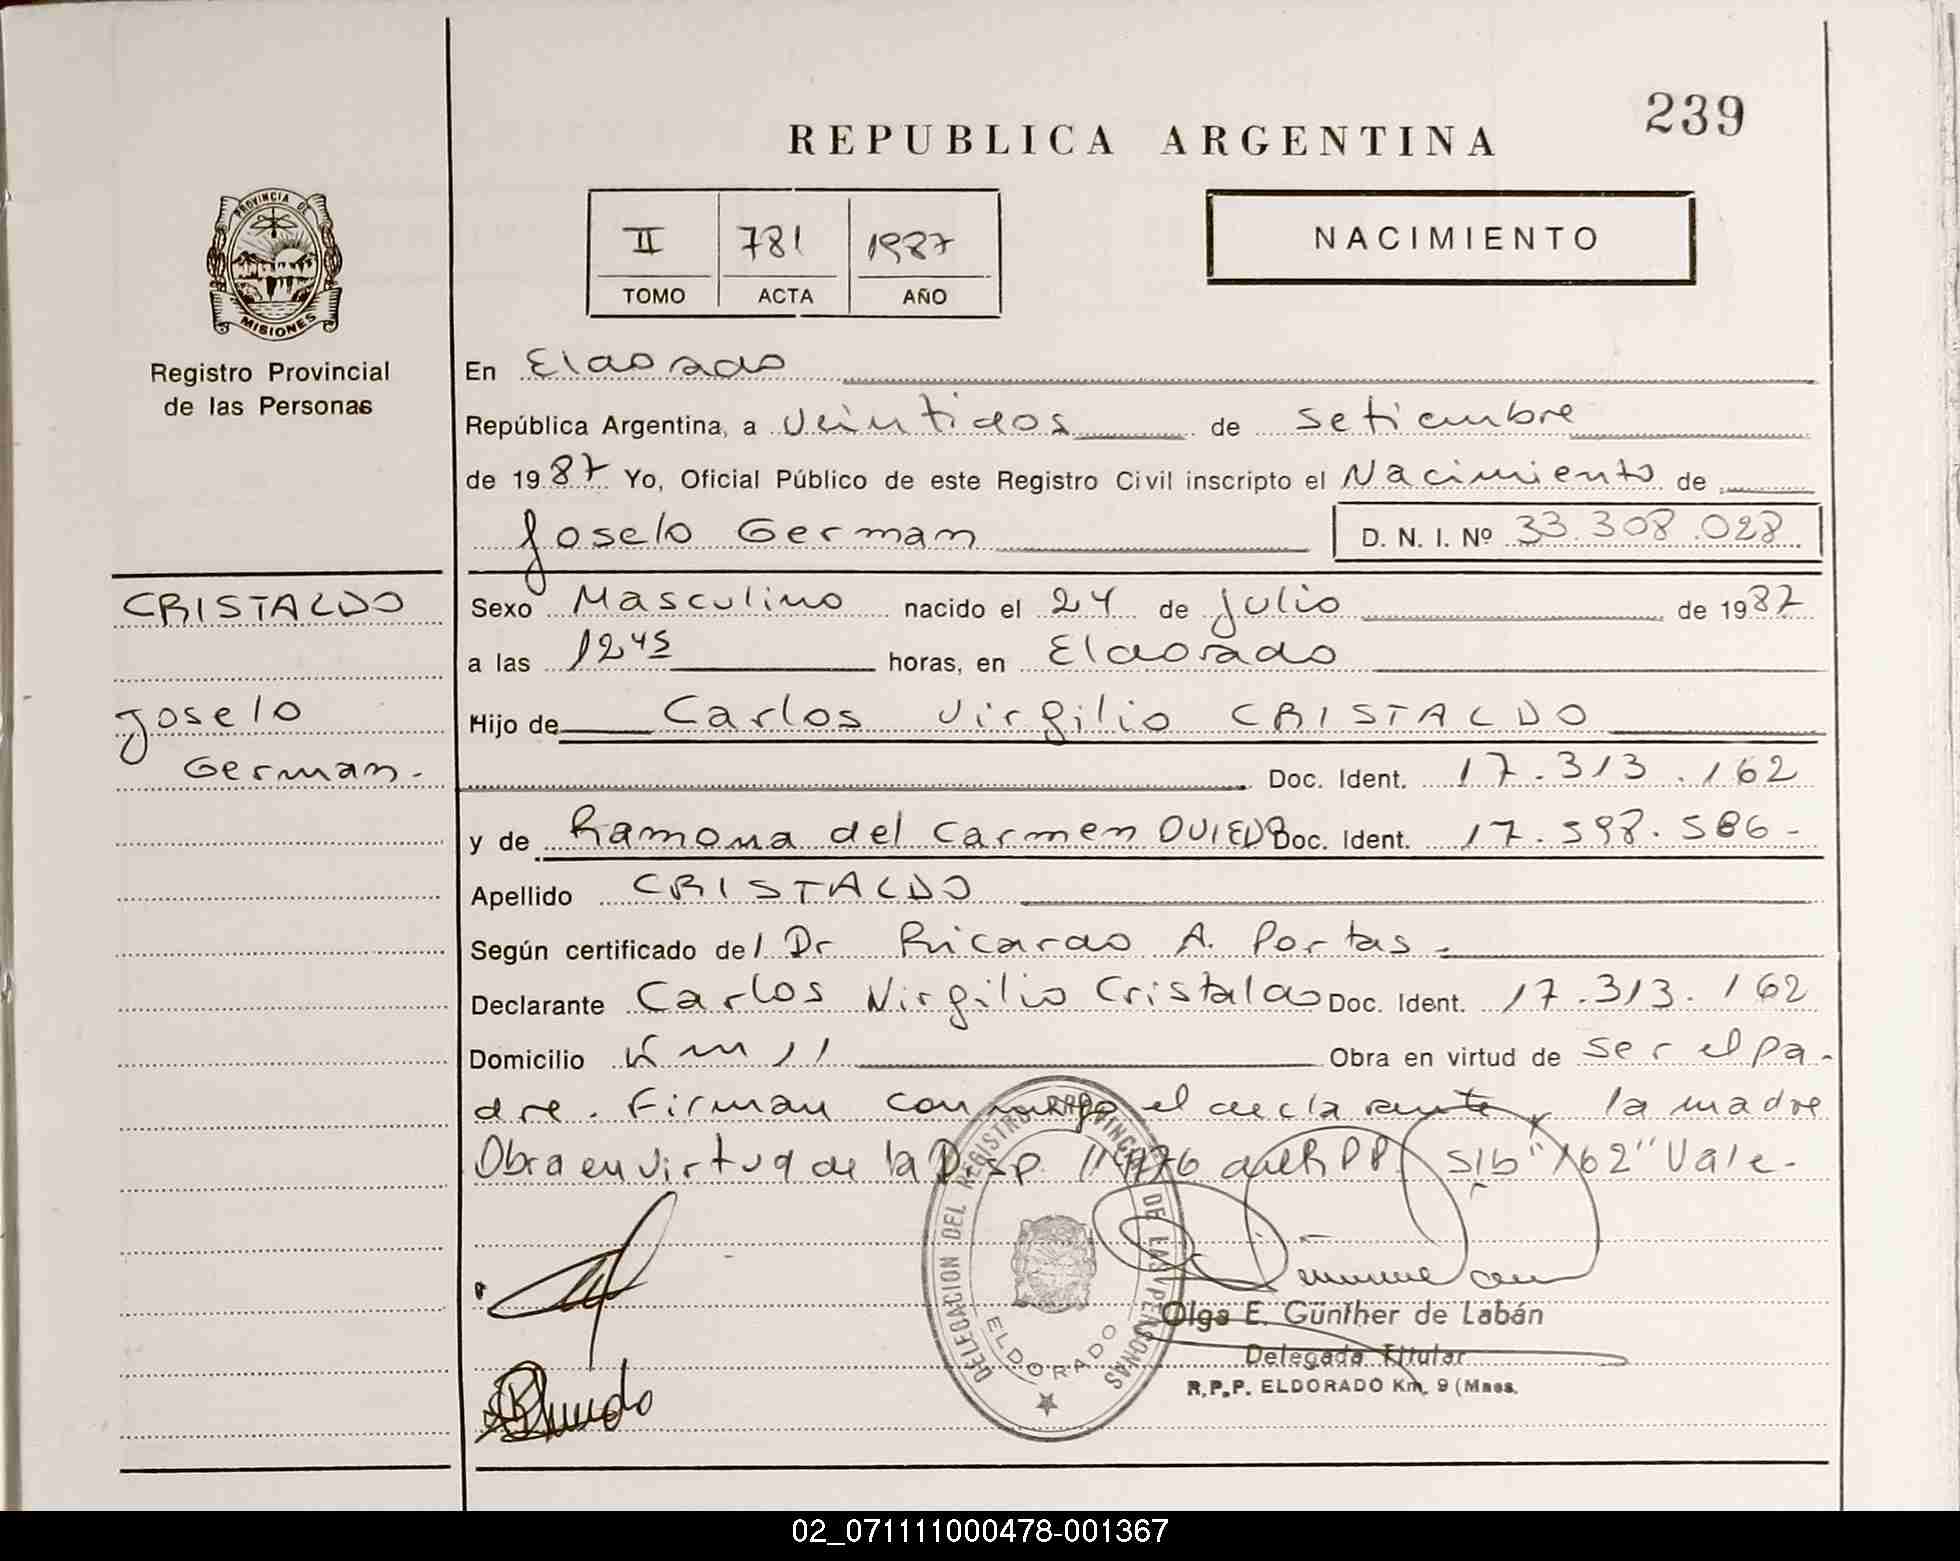 239
REPUBLICA ARGENTINA
PROVINCIA DE
MISIONES
Registro Provincial
de las Personas
II 781 1987
TOMO ACTA AÑO
NACIMIENTO
En Eldorado
República Argentina, a veintidos de setiembre
de 1987 Yo, Oficial Público de este Registro Civil inscripto el Nacimiento de
Joselo German D. N. I. Nº 33.308.028
CRISTALDO
Joselo
German.
Sexo Masculino nacido el 24 de julio de 1987
a las 12 45 horas, en Eldorado
Hijo de Carlos Virgilio CRISTALDO
Doc. Ident. 17.313.162
y de Ramona del Carmen OVIEDO Doc. Ident. 17.598.586-
Apellido CRISTALDO
Según certificado del Dr Ricardo A. Portas-
Declarante Carlos Virgilio Cristaldo Doc. Ident. 17.313.162
Domicilio Km 11 Obra en virtud de ser el pa-
dre. Firman conmigo el declarante y la madre
Obra en virtud de la Disp. 11/976 del RPP. S/b "162" Vale-
DELEGACION DEL REGISTRO PROVINCIAL DE LAS PERSONAS
ELDORADO
Olga E. Günther de Labán
Delegada Titular
R.P.P. ELDORADO Km. 9 (Mnes.
02_071111000478-001367